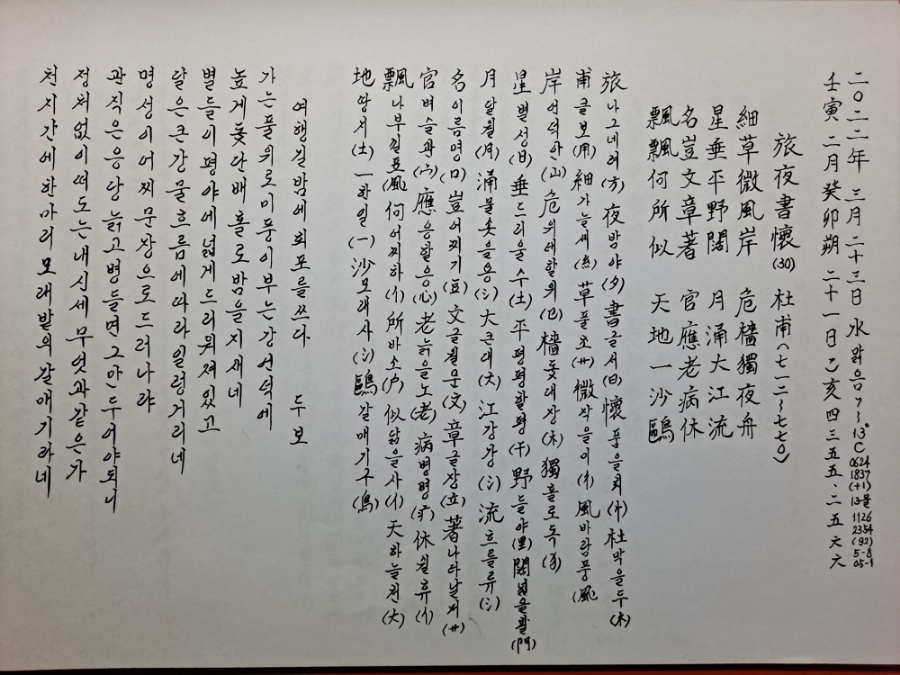 二〇二二年 三月二十三日 水 맑음 7~13°C
0624
1837
(+1)
13물
1126
2354
(92)
5-8
05-1
壬寅 二月癸卯朔 二十一日 乙亥 四三五五·二五六六
旅夜書懷(30) 杜甫(七一二~七七〇)
細草微風岸 危檣獨夜舟
星垂平野闊 月涌大江流
名豈文章著 官應老病休
飄飄何所似 天地一沙鷗
旅나그네려(方) 夜밤야(夕) 書글서(曰) 懷품을회(忄) 杜막을두(木)
甫클보(用) 細가늘세(糸) 草풀초(艹) 微작을미(彳) 風바람풍(風)
岸언덕안(山) 危위태할위(㔾) 檣돛대장(木) 獨홀로독(犭)
星별성(日) 垂드리울수(土) 平평평할평(干) 野들야(里) 闊넓을활(門)
月달월(月) 涌물솟을용(氵) 大큰대(大) 江강강(氵) 流흐를류(氵)
名이름명(口) 豈어찌기(豆) 文글월문(文) 章글장(立) 著나타날저(艹)
官벼슬관(宀) 應응할응(心) 老늙을노(老) 病병병(疒) 休쉴휴(亻)
飄나부낄표(風) 何어찌하(亻) 所바소(戶) 似닮을사(亻) 天하늘천(大)
地땅지(土) 一한일(一) 沙모래사(氵) 鷗갈매기구(鳥)
여행길 밤에 회포를 쓰다. 두보
가는 풀 위로 미풍이 부는 강 언덕에
높게 돛 단 배 홀로 밤을 지새네
별들이 평야에 넓게 드리워져 있고
달은 큰 강물 흐름에 따라 일렁거리네
명성이 어찌 문장으로 드러나랴
관직은 응당 늙고 병들면 그만두어야 되니
정처없이 떠도는 내 신세 무엇과 같은가
천지간에 한 마리 모래밭의 갈매기라네